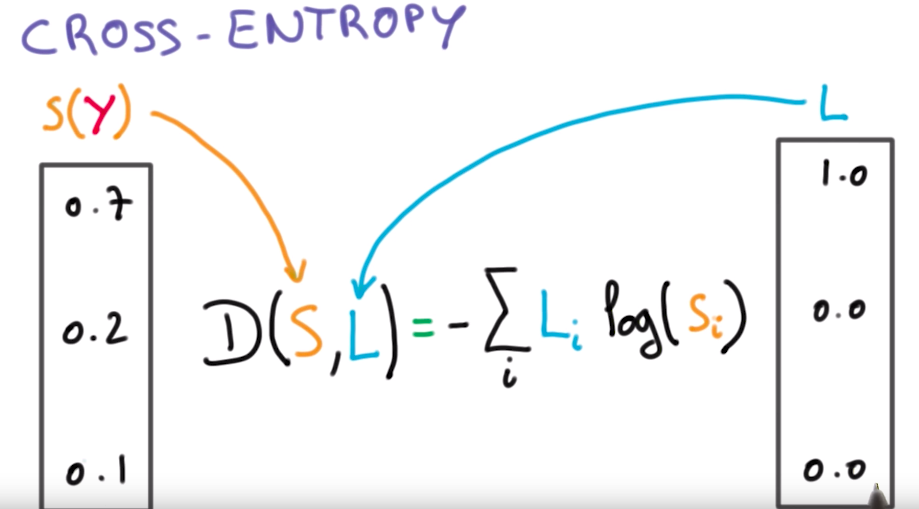 CROSS-ENTROPY
S(Y)
L
0.7
0.2
0.1
D(S,L) = - ∑ᵢ Lᵢ log(Sᵢ)
1.0
0.0
0.0